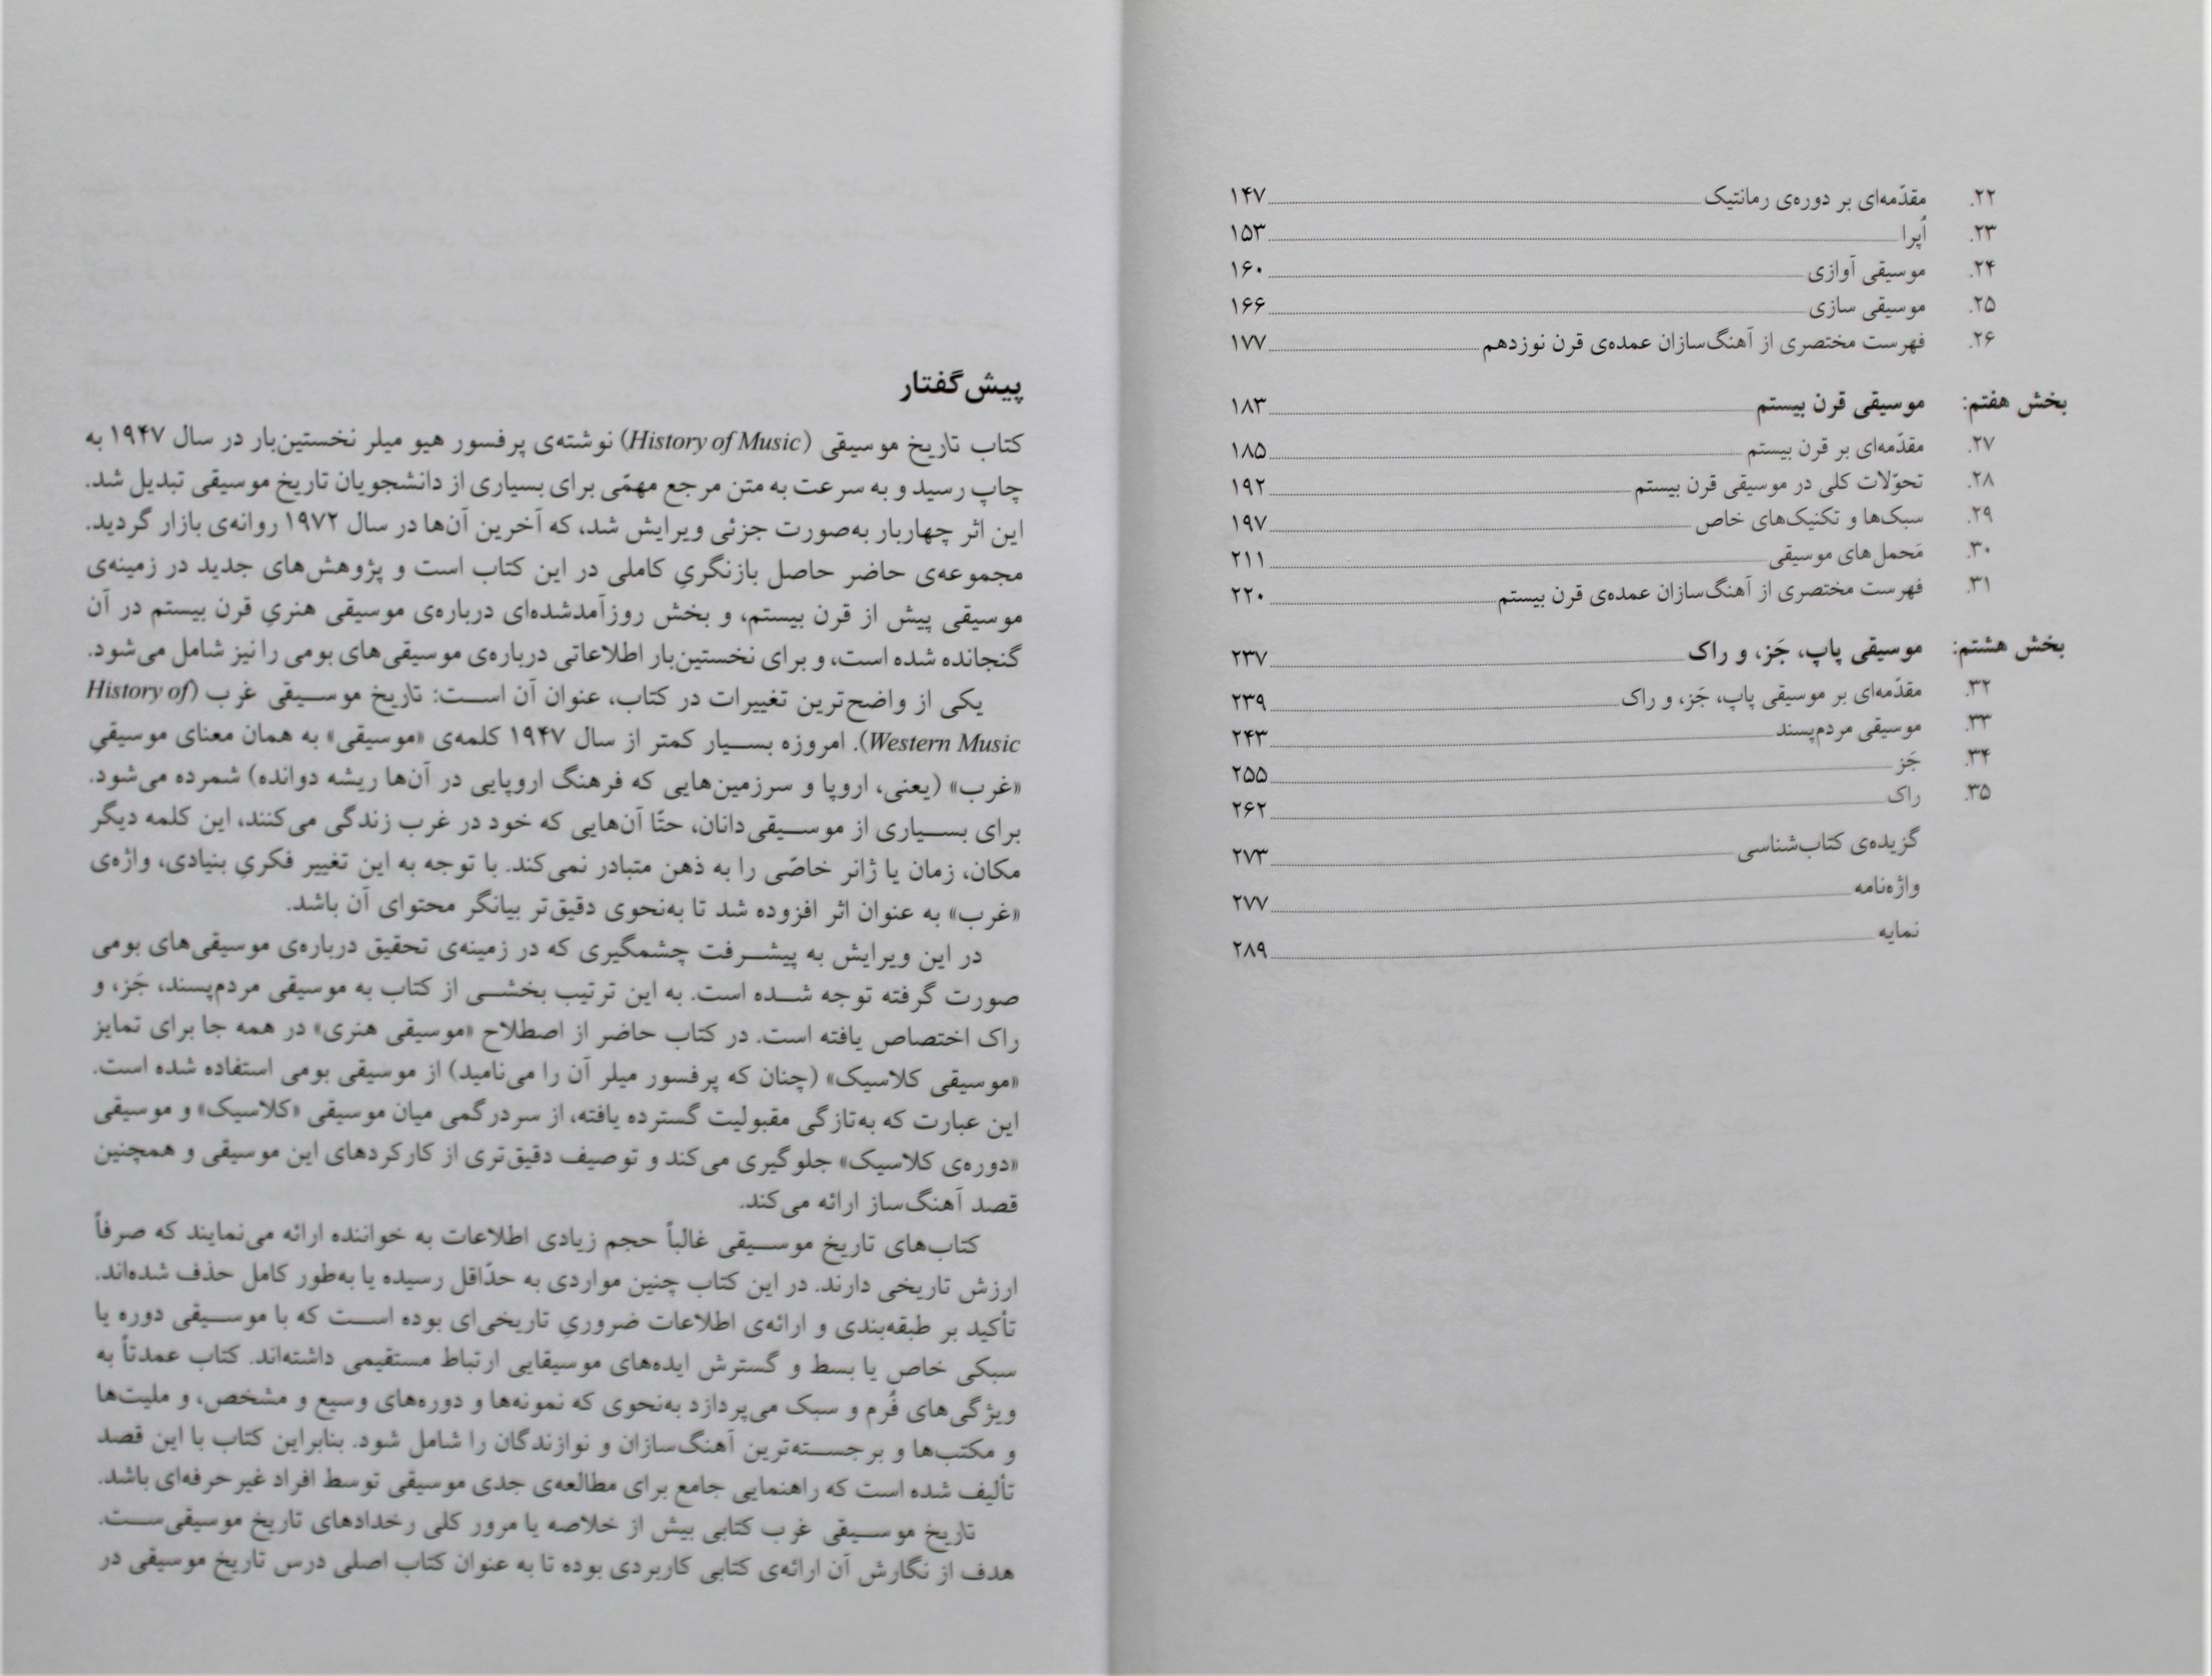 ۲۲. مقدّمه‌ای بر دوره‌ی رمانتیک ۱۴۷
۲۳. اُپرا ۱۵۳
۲۴. موسیقی آوازی ۱۶۰
۲۵. موسیقی سازی ۱۶۶
۲۶. فهرست مختصری از آهنگ‌سازان عمده‌ی قرن نوزدهم ۱۷۷
بخش هفتم: موسیقی قرن بیستم ۱۸۳
۲۷. مقدّمه‌ای بر قرن بیستم ۱۸۵
۲۸. تحوّلات کلی در موسیقی قرن بیستم ۱۹۲
۲۹. سبک‌ها و تکنیک‌های خاص ۱۹۷
۳۰. مَحمل‌های موسیقی ۲۱۱
۳۱. فهرست مختصری از آهنگ‌سازان عمده‌ی قرن بیستم ۲۲۰
بخش هشتم: موسیقی پاپ، جَز، و راک ۲۳۷
۳۲. مقدّمه‌ای بر موسیقی پاپ، جَز، و راک ۲۳۹
۳۳. موسیقی مردم‌پسند ۲۴۳
۳۴. جَز ۲۵۵
۳۵. راک ۲۶۲
گزیده‌ی کتاب‌شناسی ۲۷۳
واژه‌نامه ۲۷۷
نمایه ۲۸۹
پیش‌گفتار
کتاب تاریخ موسیقی (History of Music) نوشته‌ی پرفسور هیو میلر نخستین‌بار در سال ۱۹۴۷ به
چاپ رسید و به سرعت به متن مرجع مهمّی برای بسیاری از دانشجویان تاریخ موسیقی تبدیل شد.
این اثر چهاربار به‌صورت جزئی ویرایش شد، که آخرین آن‌ها در سال ۱۹۷۲ روانه‌ی بازار گردید.
مجموعه‌ی حاضر حاصل بازنگریِ کاملی در این کتاب است و پژوهش‌های جدید در زمینه‌ی
موسیقی پیش از قرن بیستم، و بخش روزآمدشده‌ای درباره‌ی موسیقی هنریِ قرن بیستم در آن
گنجانده شده است، و برای نخستین‌بار اطلاعاتی درباره‌ی موسیقی‌های بومی را نیز شامل می‌شود.
یکی از واضح‌ترین تغییرات در کتاب، عنوان آن است: تاریخ موسیقی غرب (History of
Western Music). امروزه بسیار کمتر از سال ۱۹۴۷ کلمه‌ی «موسیقی» به همان معنای موسیقیِ
«غرب» (یعنی، اروپا و سرزمین‌هایی که فرهنگ اروپایی در آن‌ها ریشه دوانده) شمرده می‌شود.
برای بسیاری از موسیقی‌دانان، حتّا آن‌هایی که خود در غرب زندگی می‌کنند، این کلمه دیگر
مکان، زمان یا ژانر خاصّی را به ذهن متبادر نمی‌کند. با توجه به این تغییر فکریِ بنیادی، واژه‌ی
«غرب» به عنوان اثر افزوده شد تا به‌نحوی دقیق‌تر بیانگر محتوای آن باشد.
در این ویرایش به پیشرفت چشمگیری که در زمینه‌ی تحقیق درباره‌ی موسیقی‌های بومی
صورت گرفته توجه شده است. به این ترتیب بخشی از کتاب به موسیقی مردم‌پسند، جَز، و
راک اختصاص یافته است. در کتاب حاضر از اصطلاح «موسیقی هنری» در همه جا برای تمایز
«موسیقی کلاسیک» (چنان که پرفسور میلر آن را می‌نامید) از موسیقی بومی استفاده شده است.
این عبارت که به‌تازگی مقبولیت گسترده یافته، از سردرگمی میان موسیقی «کلاسیک» و موسیقی
«دوره‌ی کلاسیک» جلوگیری می‌کند و توصیف دقیق‌تری از کارکردهای این موسیقی و همچنین
قصد آهنگ‌ساز ارائه می‌کند.
کتاب‌های تاریخ موسیقی غالباً حجم زیادی اطلاعات به خواننده ارائه می‌نمایند که صرفاً
ارزش تاریخی دارند. در این کتاب چنین مواردی به حدّاقل رسیده یا به‌طور کامل حذف شده‌اند.
تأکید بر طبقه‌بندی و ارائه‌ی اطلاعات ضروریِ تاریخی‌ای بوده است که با موسیقی دوره یا
سبکی خاص یا بسط و گسترش ایده‌های موسیقایی ارتباط مستقیمی داشته‌اند. کتاب عمدتاً به
ویژگی‌های فُرم و سبک می‌پردازد به‌نحوی که نمونه‌ها و دوره‌های وسیع و مشخص، و ملیت‌ها
و مکتب‌ها و برجسته‌ترین آهنگ‌سازان و نوازندگان را شامل شود. بنابراین کتاب با این قصد
تألیف شده است که راهنمایی جامع برای مطالعه‌ی جدی موسیقی توسط افراد غیرحرفه‌ای باشد.
تاریخ موسیقی غرب کتابی بیش از خلاصه یا مرور کلی رخدادهای تاریخ موسیقی‌ست.
هدف از نگارش آن ارائه‌ی کتابی کاربردی بوده تا به عنوان کتاب اصلی درس تاریخ موسیقی در